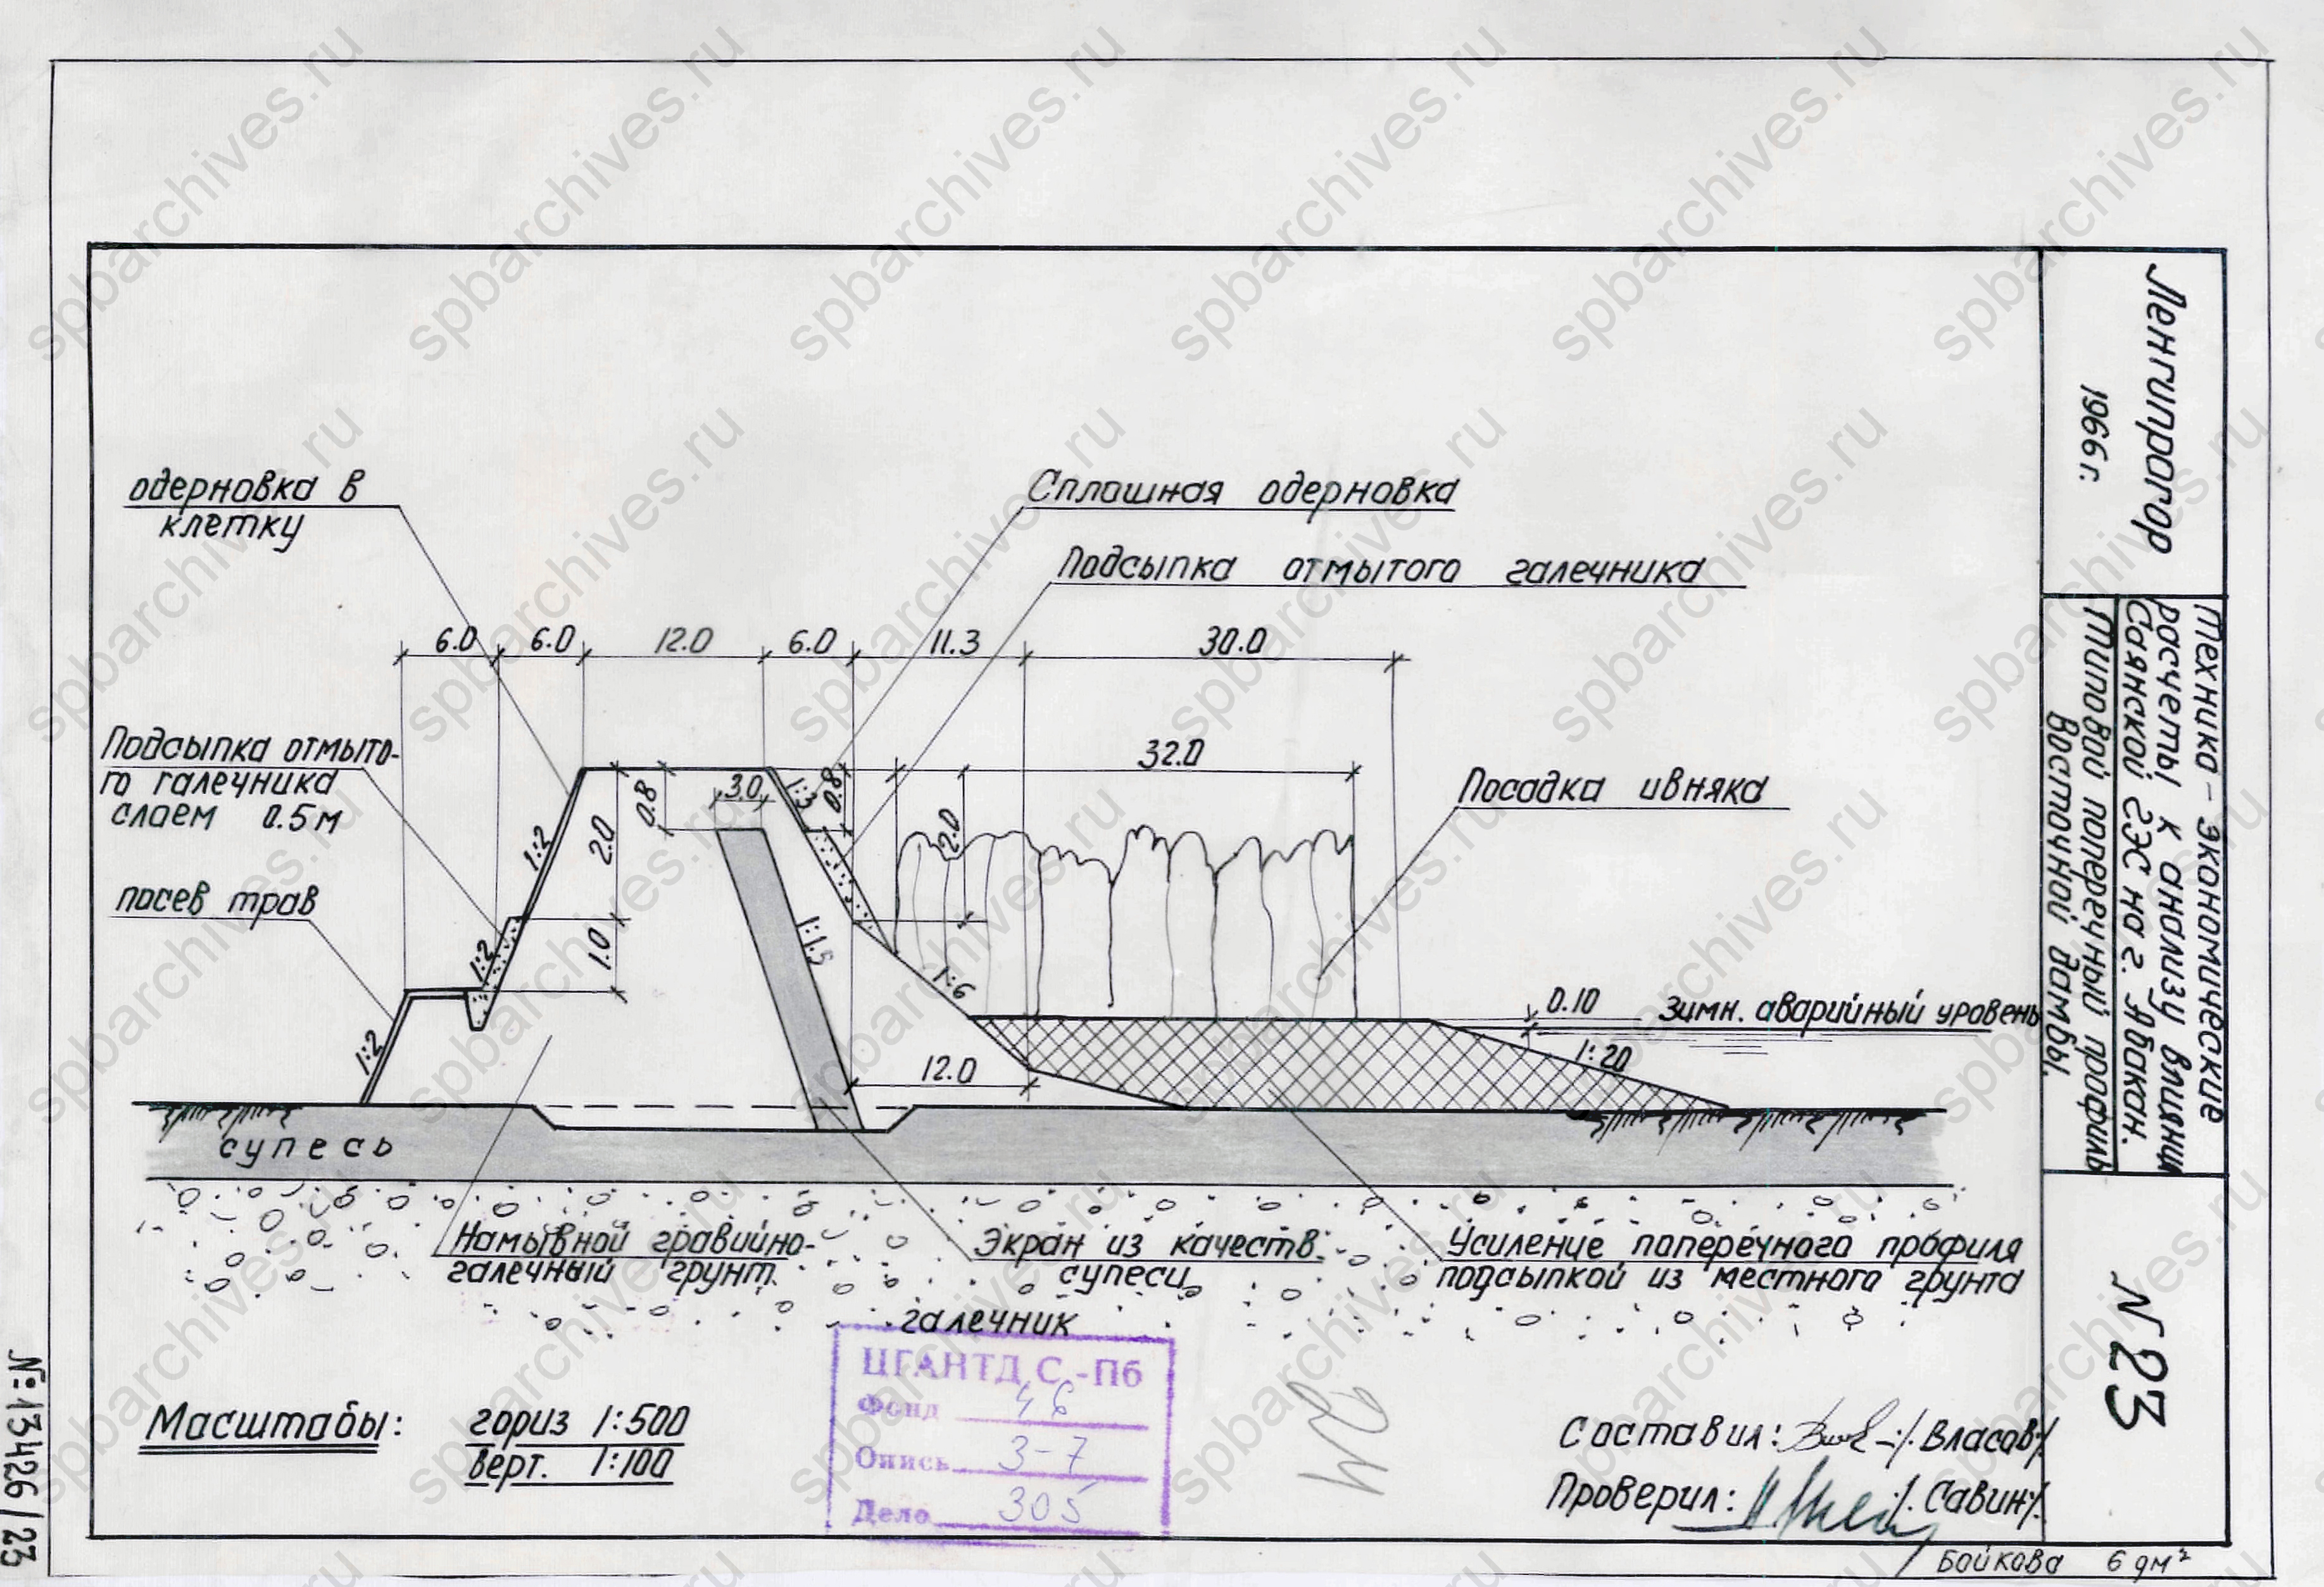 одерновка в
клетку
Сплошная одерновка
Подсыпка отмытого галечника
6.0 6.0 12.0 6.0 11.3 30.0
Подсыпка отмыто-
го галечника
слоем 0.5 м
32.0
Посадка ивняка
0.8 3.0 1:3 0.8
1:2 2.0 2.0
посев трав
1:2 1.0 1:1.5 1:6
0.10 Зимн. аварийный уровень
1:2 12.0 1:20
супесь
Намывной гравийно-
галечный грунт.
Экран из качеств.
супеси
Усиление поперечного профиля
подсыпкой из местного грунта
галечник
Масштабы: гориз 1:500
верт. 1:100
ЦГАНТД С.-Пб
Фонд 46
Опись 3-7
Дело 305
24
Составил: /Власов/
Проверил: /Савин/
Ленгипрогор
1966 г.
Технико-экономические
расчеты к анализу влияни
Саянской ГЭС на г. Абакан.
Типовой поперечный профиль
Восточной дамбы.
N 23
Бойкова 6 дм²
№ 13426/23
spbarchives.ru